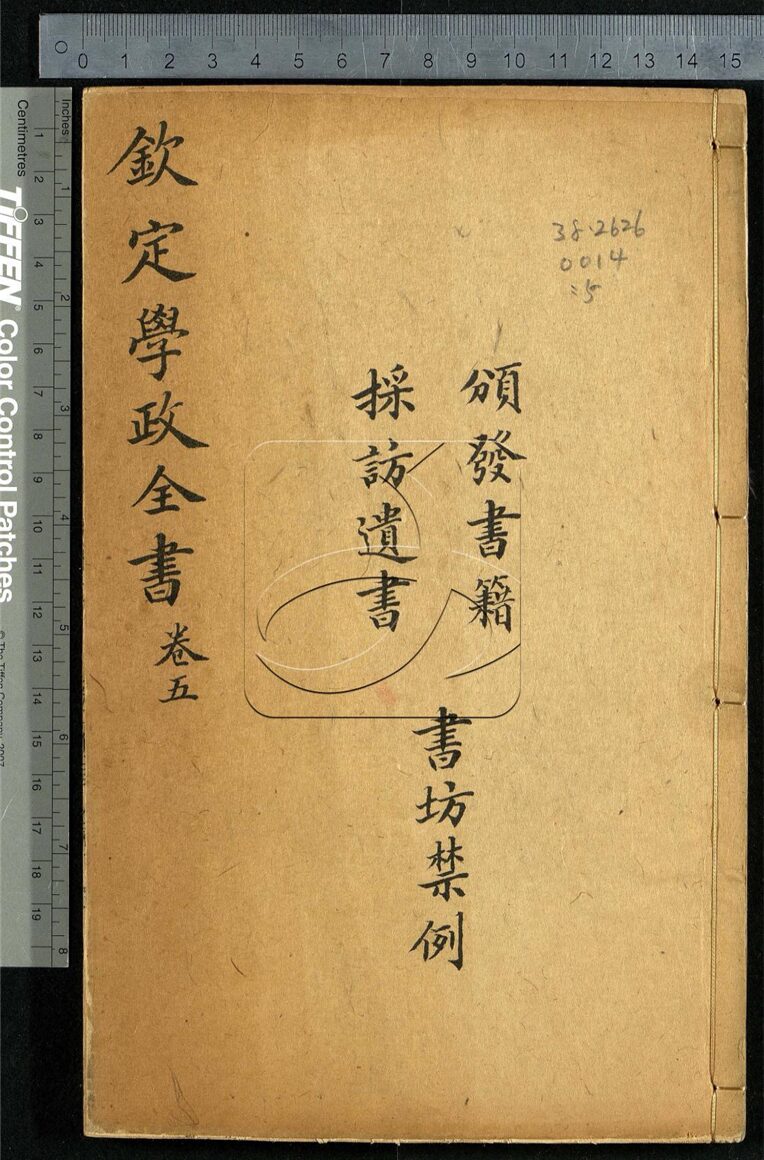 0 1 2 3 4 5 6 7 8 9 10 11 12 13 14 15
欽定學政全書 卷五
頒發書籍
採訪遺書
書坊禁例
38.2626
0014
:5
Inches
1 2 3 4 5 6 7 8
Centimetres
1 2 3 4 5 6 7 8 9 10 11 12 13 14 15 16 17 18 19
TIFFEN® Color Control Patches
© The Tiffen Company, 2007